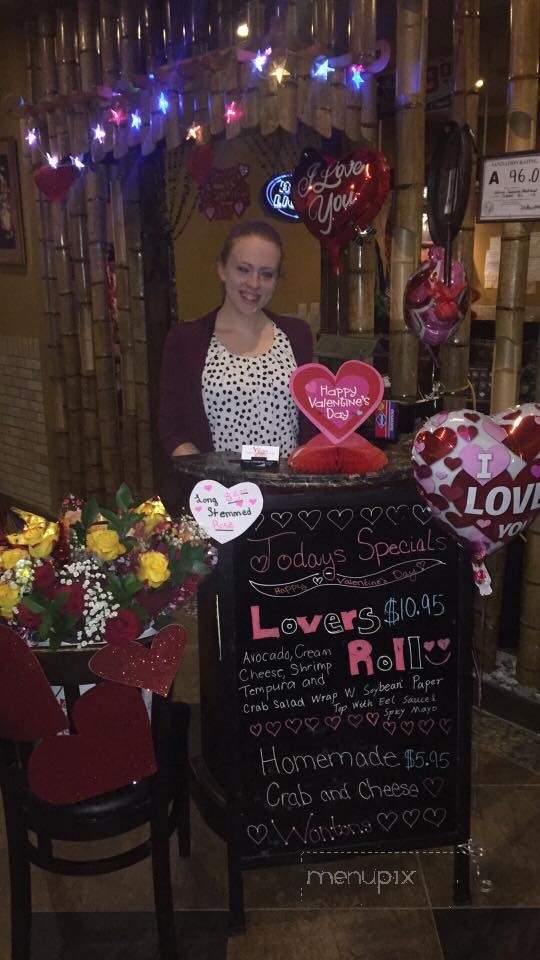 I Love
You
SANITATION RATING
A 96.0
Happy
Valentine's
Day
I
LOVE
YOU
Long
Stemmed
Rose
Todays Specials
Happy Valentine's Day
Lovers $10.95
Roll
Avocado, Cream
Cheese, Shrimp
Tempura and
Crab Salad Wrap W Soybean Paper
Top With Eel Sauce &
Spicy Mayo
Homemade $5.95
Crab and Cheese
Wontons
menupix